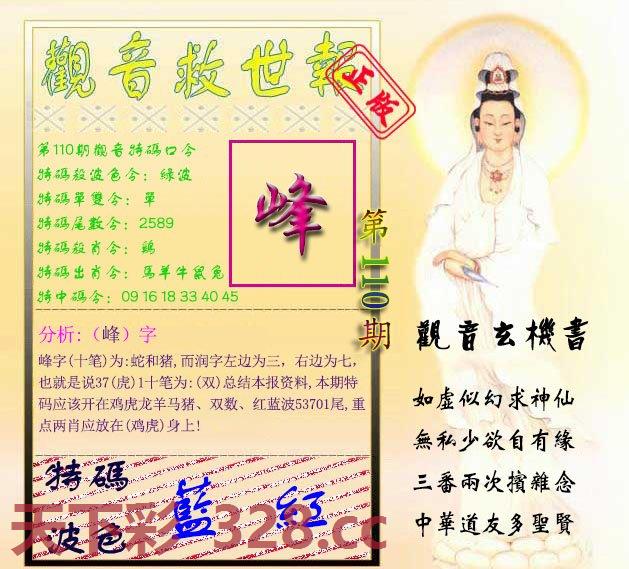 觀音救世報
正版
第110期觀音特碼口令
特碼殺波色令：綠波
特碼單雙令：單
特碼尾數令：2589
特碼殺肖令：鷄
特碼出肖令：馬羊牛鼠兔
特中碼令：09 16 18 33 40 45
峰
第110期
分析:（峰）字
峰字(十笔)为:蛇和猪,而润字左边为三，右边为七，
也就是说37(虎)1十笔为:(双)总结本报资料,本期特
码应该开在鸡虎龙羊马猪、双数、红蓝波53701尾,重
点两肖应放在(鸡虎)身上!
特碼
波色
藍 紅
天下彩 1328.cc
觀音玄機書
如虛似幻求神仙
無私少欲自有緣
三番兩次擯雜念
中華道友多聖賢